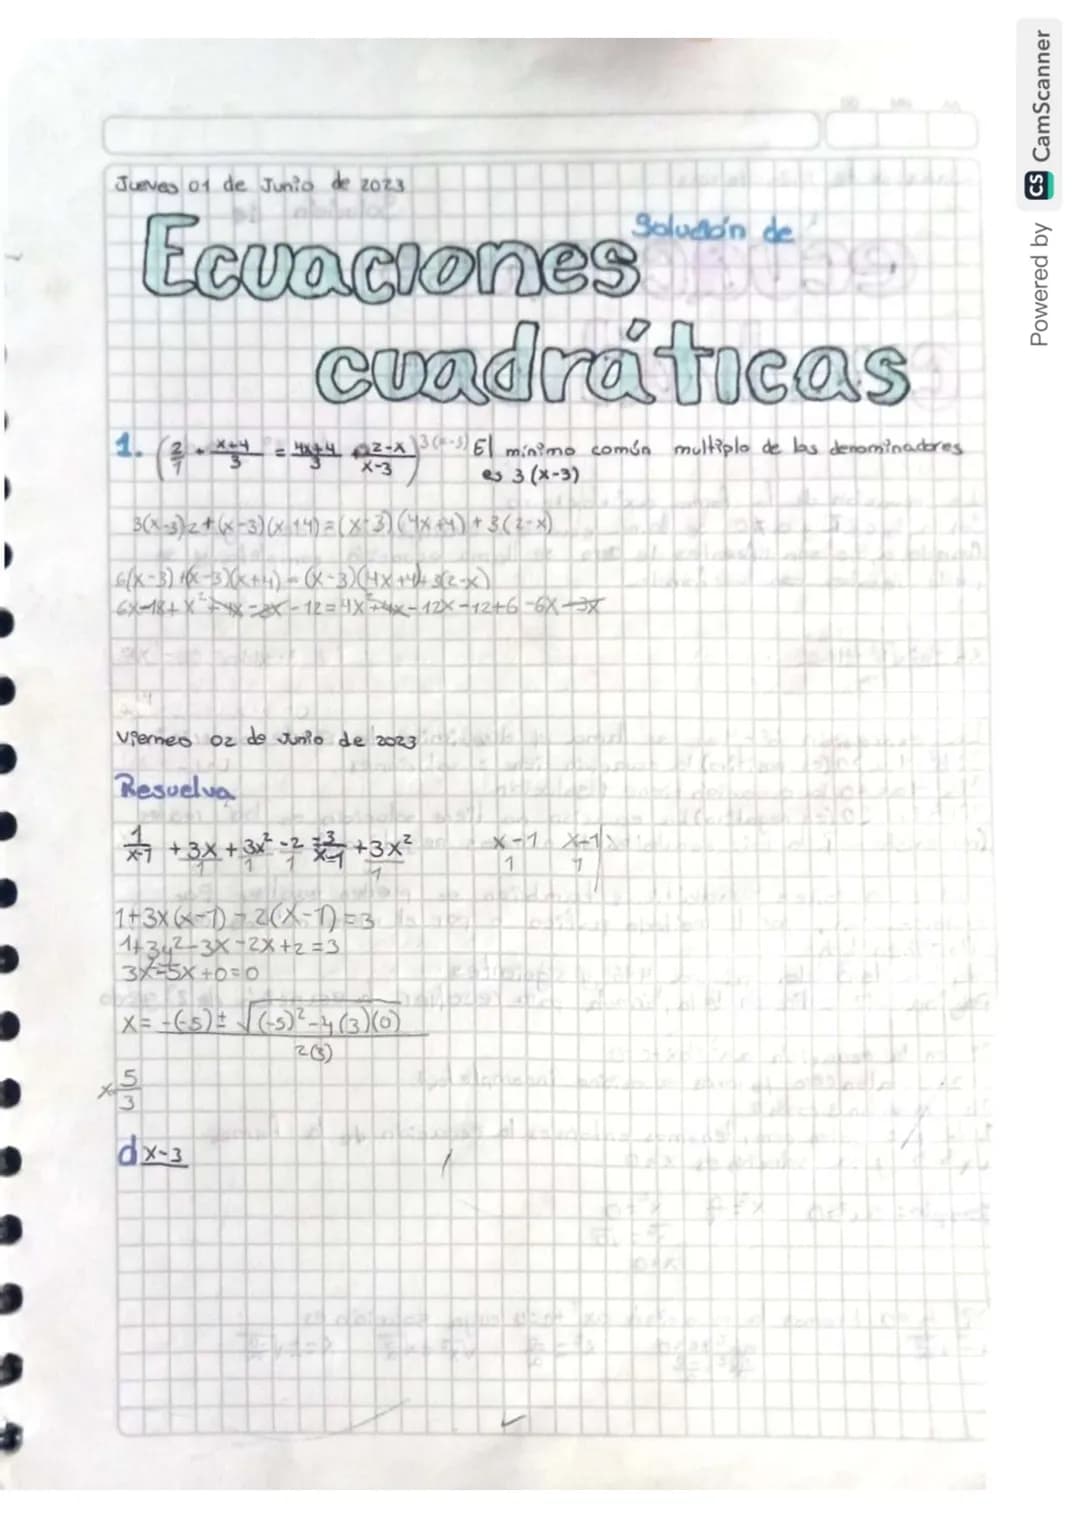 Jueves 01 de Junio de 2023
Solución de
Ecuaciones
cuadráticas
1. (2/1 + x+4/3 = 4x+4/3 + 2-x/x-3) 3(x-3) El mínimo común multiplo de las denominadores
es 3(x-3)
3(x-3)2+(x-3)(x+4)=(x-3)(4x+4)+3(2-x)
6(x-3)+(x-3)(x+4)=(x-3)(4x+4)+3(2-x)
6x-18+x²+4x-3x-12=4x²+4x-12x-12+6-6x-3x
Viernes 02 de Junio de 2023
Resuelva
1/x-1 + 3x/1 + 3x²/1 - 2/1 = 3/x-1 + 3x²/1 x-1/1 x-1/1
1+3x(x-1)-2(x-1)=3
1+3x²-3x-2x+2=3
3x²-5x+0=0
x= -(-5)± √(-5)²-4(3)(0)
2(3)
x= 5/3
d x-3
Powered by CS CamScanner